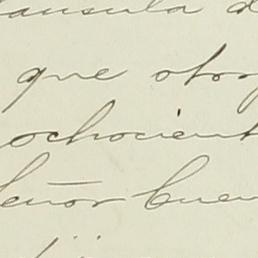 clausula d
que otorg
ochocient
señor Buen